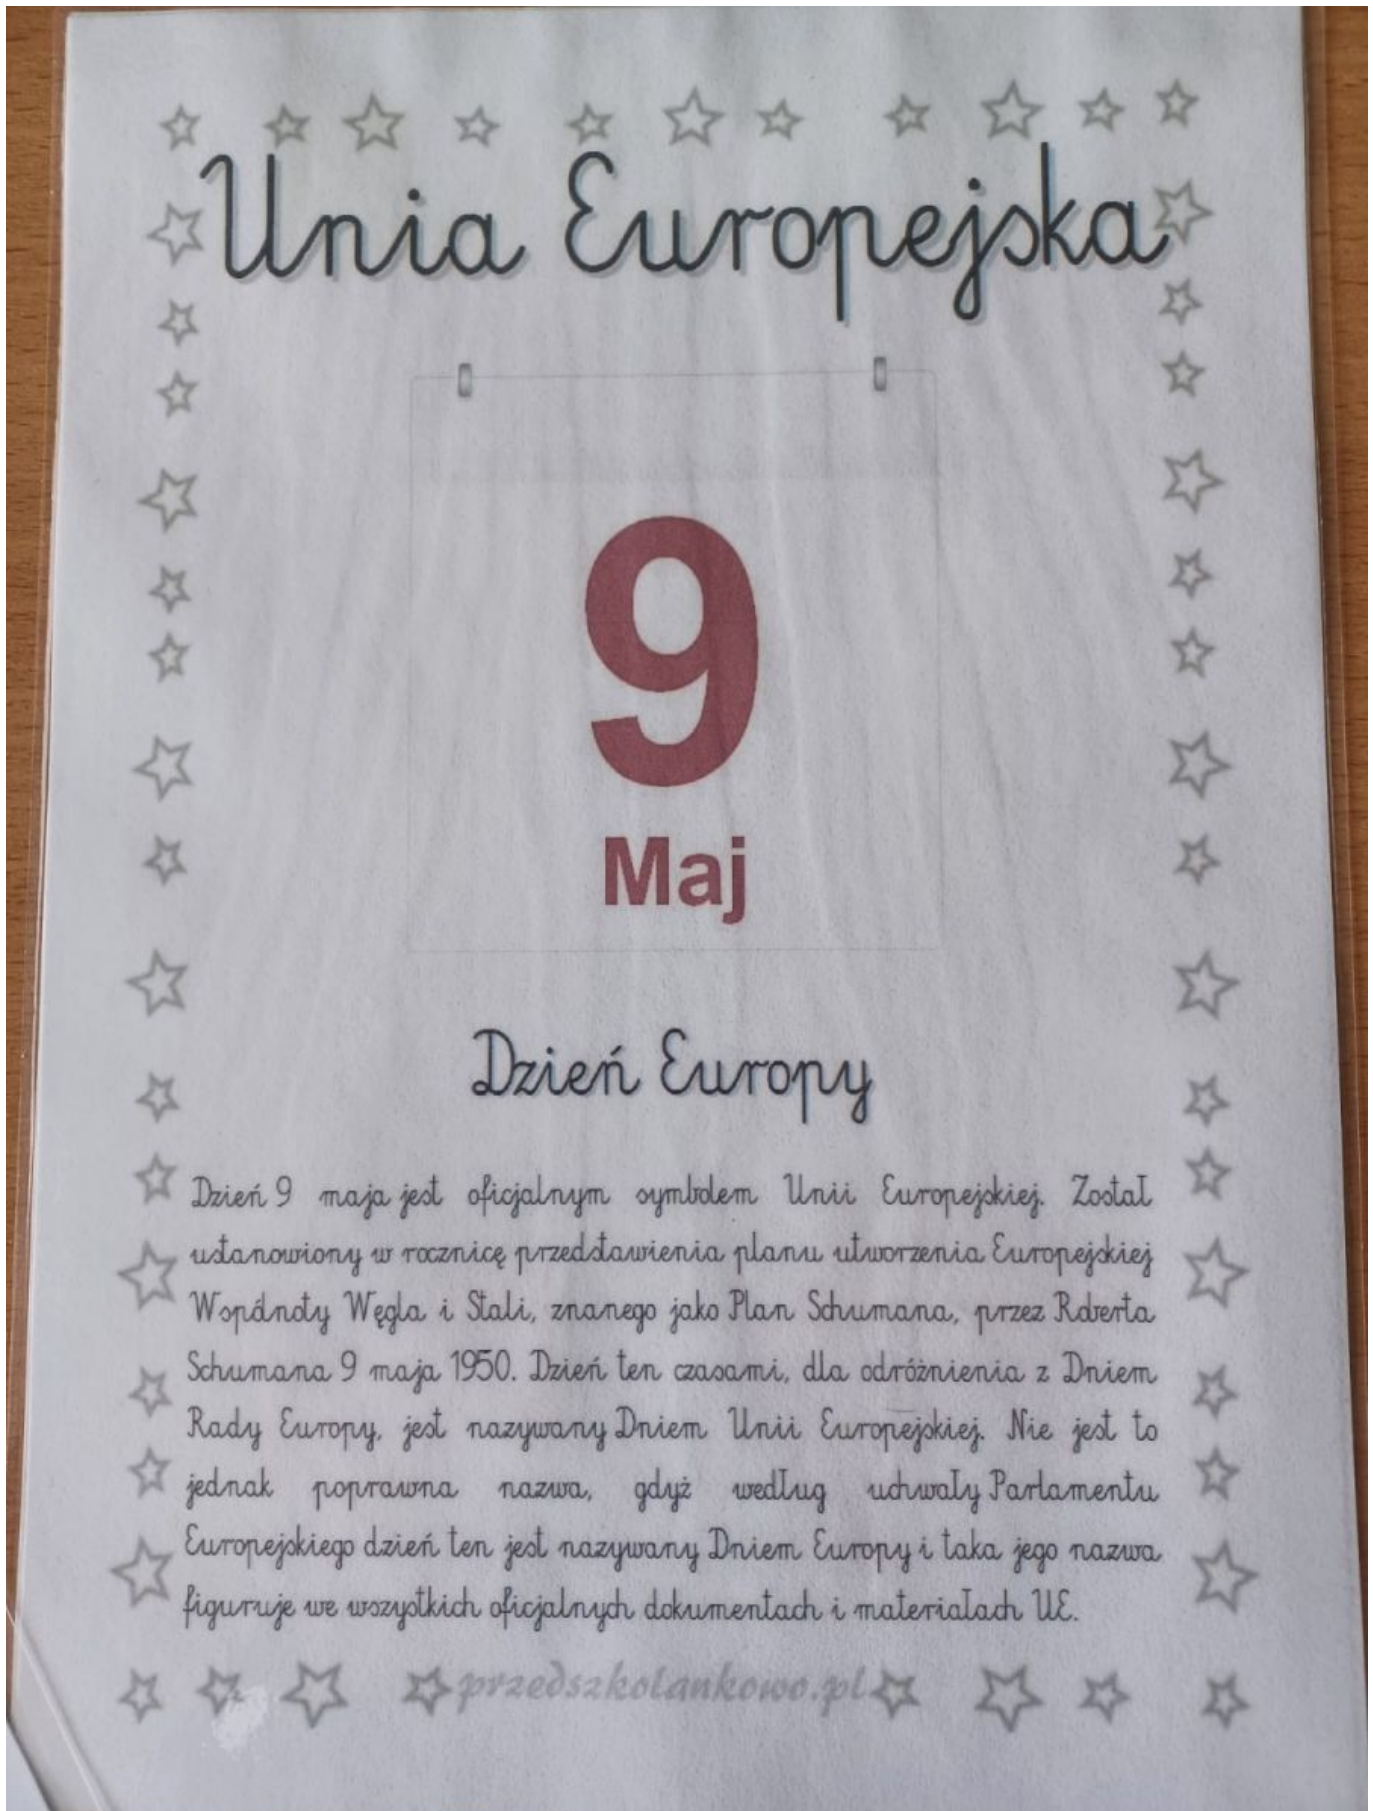 Unia Europejska
9
Maj
Dzień Europy
Dzień 9 maja jest oficjalnym symbolem Unii Europejskiej. Został
ustanowiony w rocznicę przedstawienia planu utworzenia Europejskiej
Wspólnoty Węgla i Stali, znanego jako Plan Schumana, przez Roberta
Schumana 9 maja 1950. Dzień ten czasami, dla odróżnienia z Dniem
Rady Europy, jest nazywany Dniem Unii Europejskiej. Nie jest to
jednak poprawna nazwa, gdyż według uchwały Parlamentu
Europejskiego dzień ten jest nazywany Dniem Europy i taka jego nazwa
figuruje we wszystkich oficjalnych dokumentach i materiałach UE.
przedszkolankowo.pl